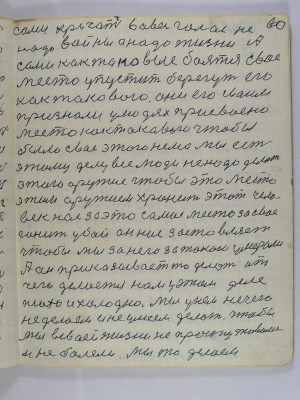 сами кричат вавсе галас не 60
надо вайны а надо жизни А
сами как та новые баятся свае
место упустит берегут его
как такового. они его сами
признали у людях присваено
место как такавого чтобы
было свае этого нема мы ест
этому делу все люди не надо делат
этаго аружие чтобы это место
этим аружием хранит этот чело-
век нас за это самае место за свае
гонит убой он нас заставляет
чтобы мы за него за такого умирали
А сам приказывает то делат от
чего делается нам у этом деле
плохо и холодно. Мы у нем нечего
не делаем и не умеем делат. чтобы
мы в своей жизни не простуживалис
и не болели. Мы то делаем